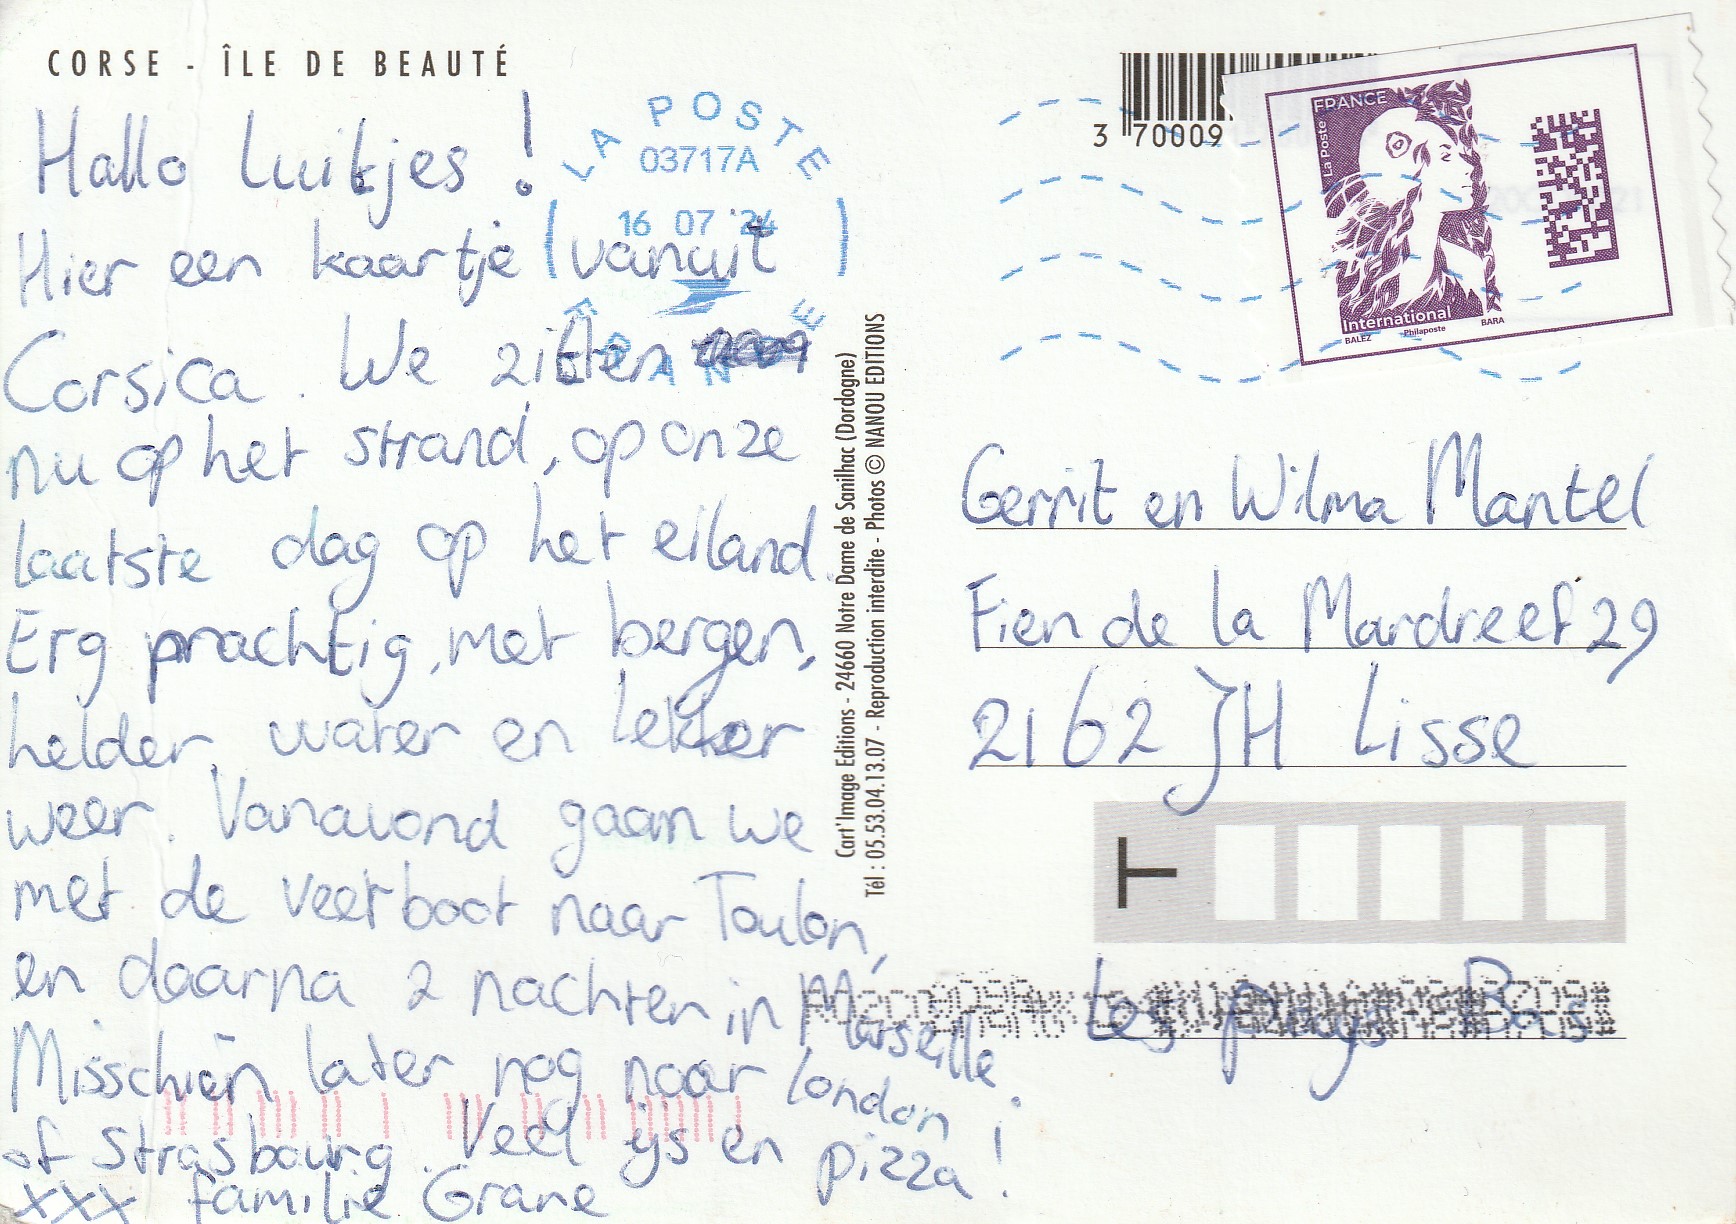 CORSE - ÎLE DE BEAUTÉ
Hallo Luitjes!
Hier een kaartje vanuit
Corsica. We zitten
nu op het strand, op onze
laatste dag op het eiland.
Erg prachtig, met bergen,
helder water en lekker
weer. Vanavond gaan we
met de veerboot naar Toulon,
en daarna 2 nachten in Marseille.
Misschien later nog naar London
of Strasbourg. Veel ijs en pizza!
xxx familie Grane
LA POSTE
03717A
16 07 '24
FRANCE
Cart'Image Editions - 24660 Notre Dame de Sanilhac (Dordogne)
Tél : 05.53.04.13.07 - Reproduction interdite - Photos © NANOU EDITIONS
3 70009
FRANCE
La Poste
International
BALEZ Philaposte BARA
Gerrit en Wilma Mantel
Fien de la Mardreef 29
2162 JH Lisse
T
Les pays Bas